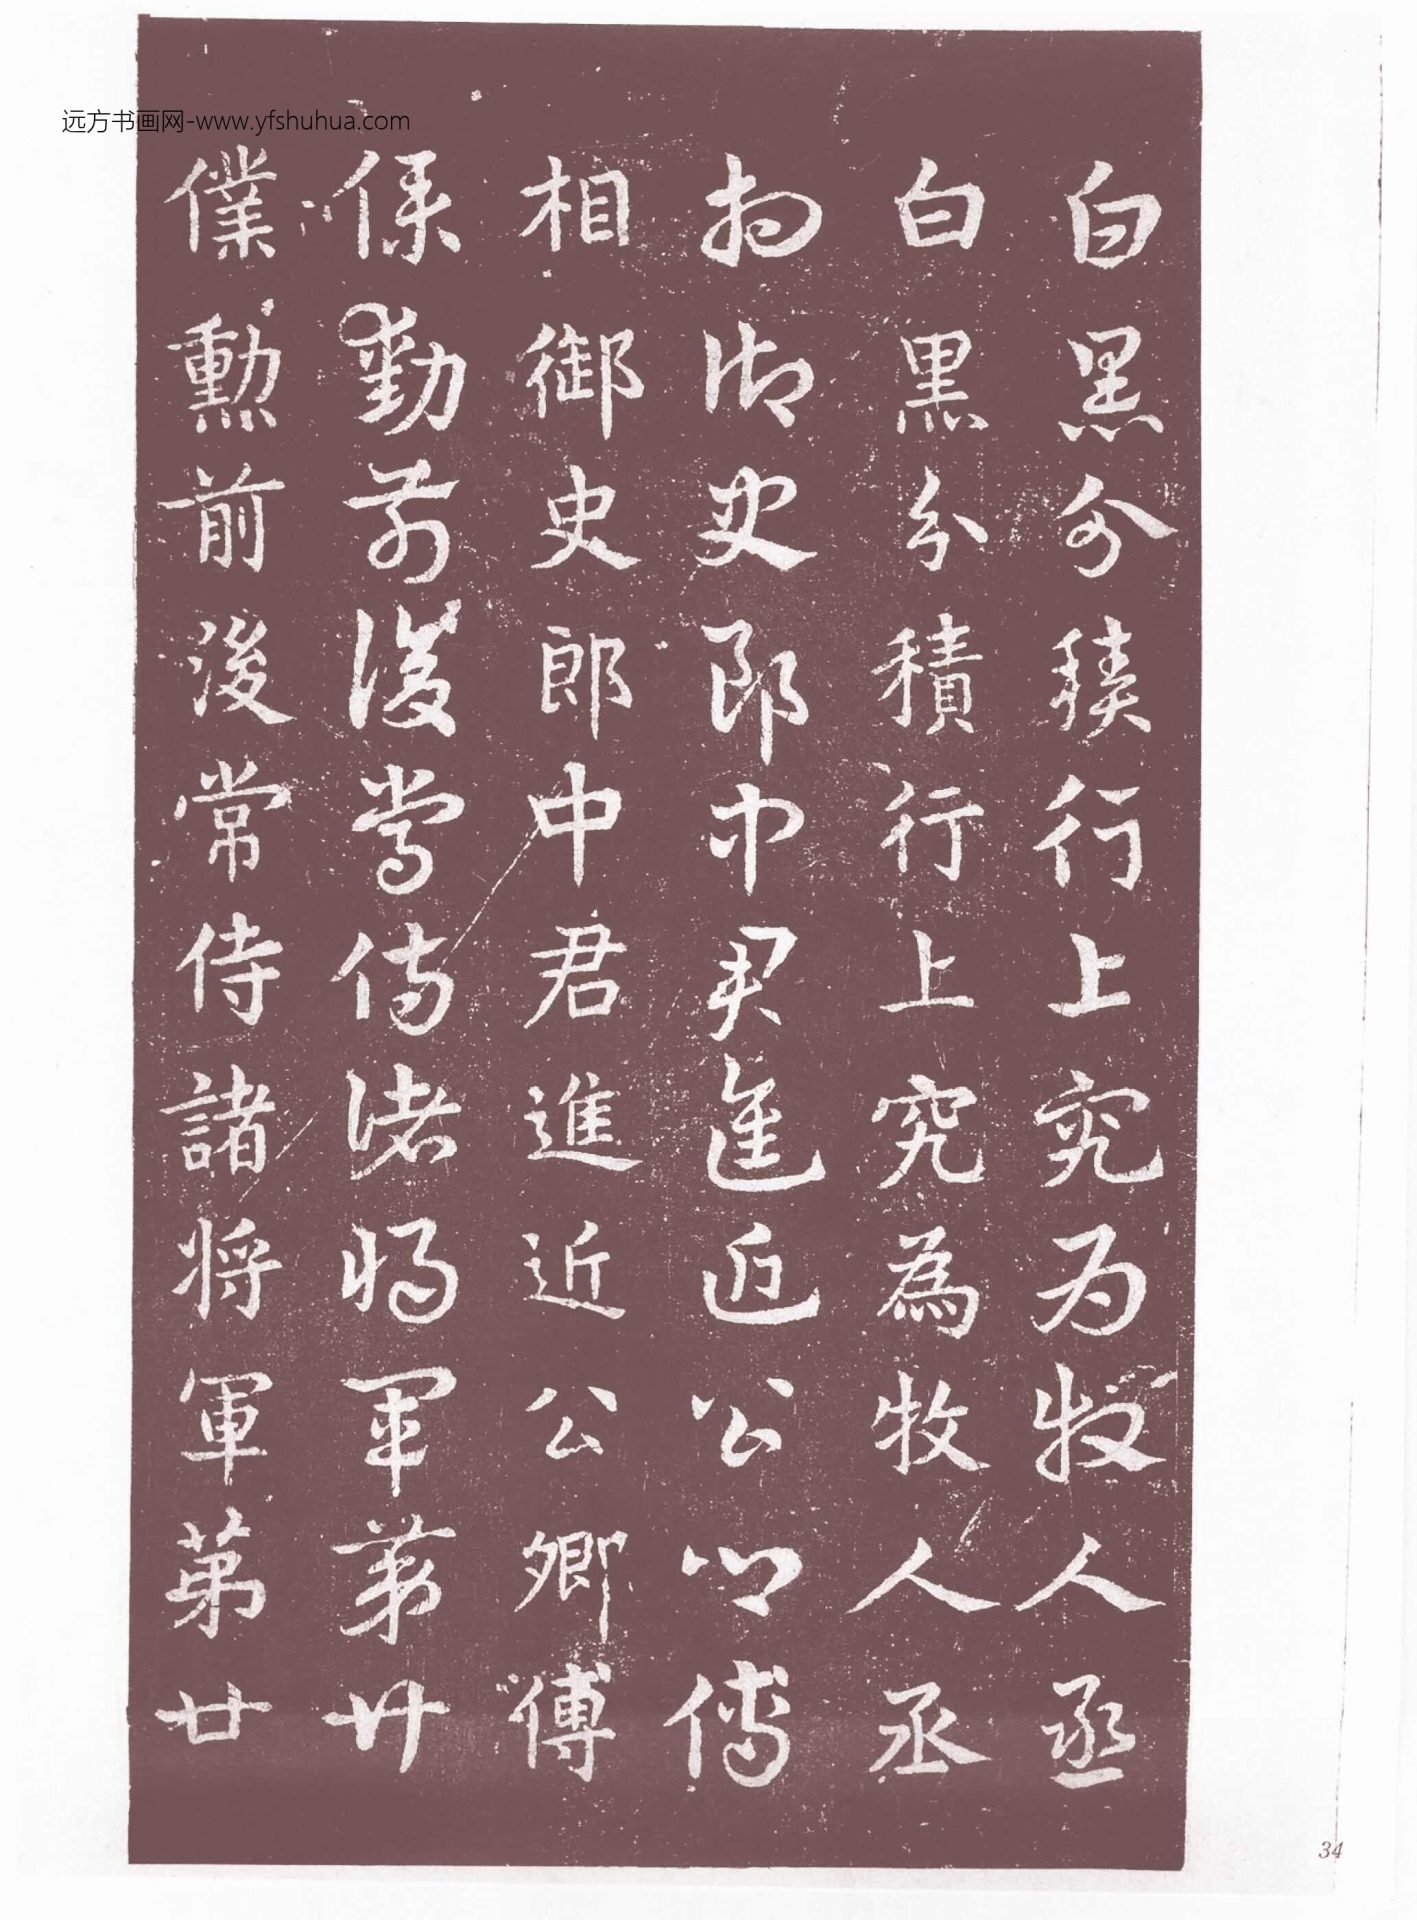 远方书画网-www.yfshuhua.com
白黑分積行上究為牧人丞
白黑分積行上究為牧人丞
相御史郎中君進近公卿傅
相御史郎中君進近公卿傅
僕勳前後常侍諸将軍苐廿
僕勳前後常侍諸将軍苐廿
34